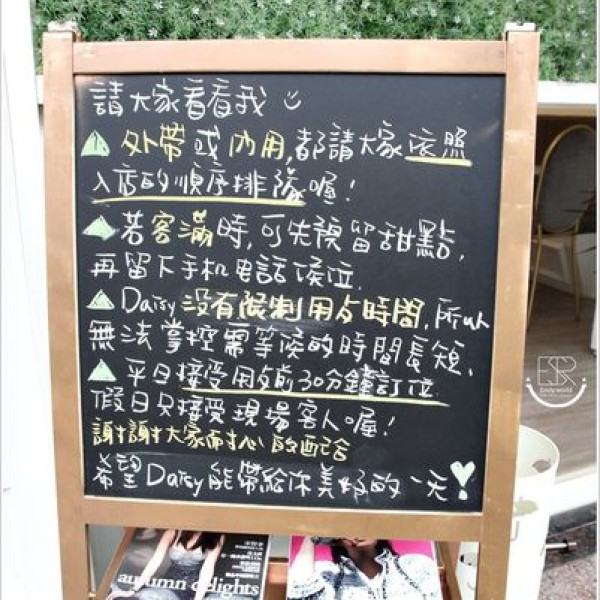 請大家看看我
外帶或內用,都請大家依照
入店的順序排隊喔!
若客滿時,可先預留甜點,
再留下手机电話候位.
Daisy沒有限制用歺時間,所以
無法掌控需等候的時間長短,
平日接受用歺前30分鐘訂位.
假日只接受現場客人喔!
謝謝大家耐心的配合
希望Daisy能帶給你美好的一天!
ESR
Emily world
autumn delights